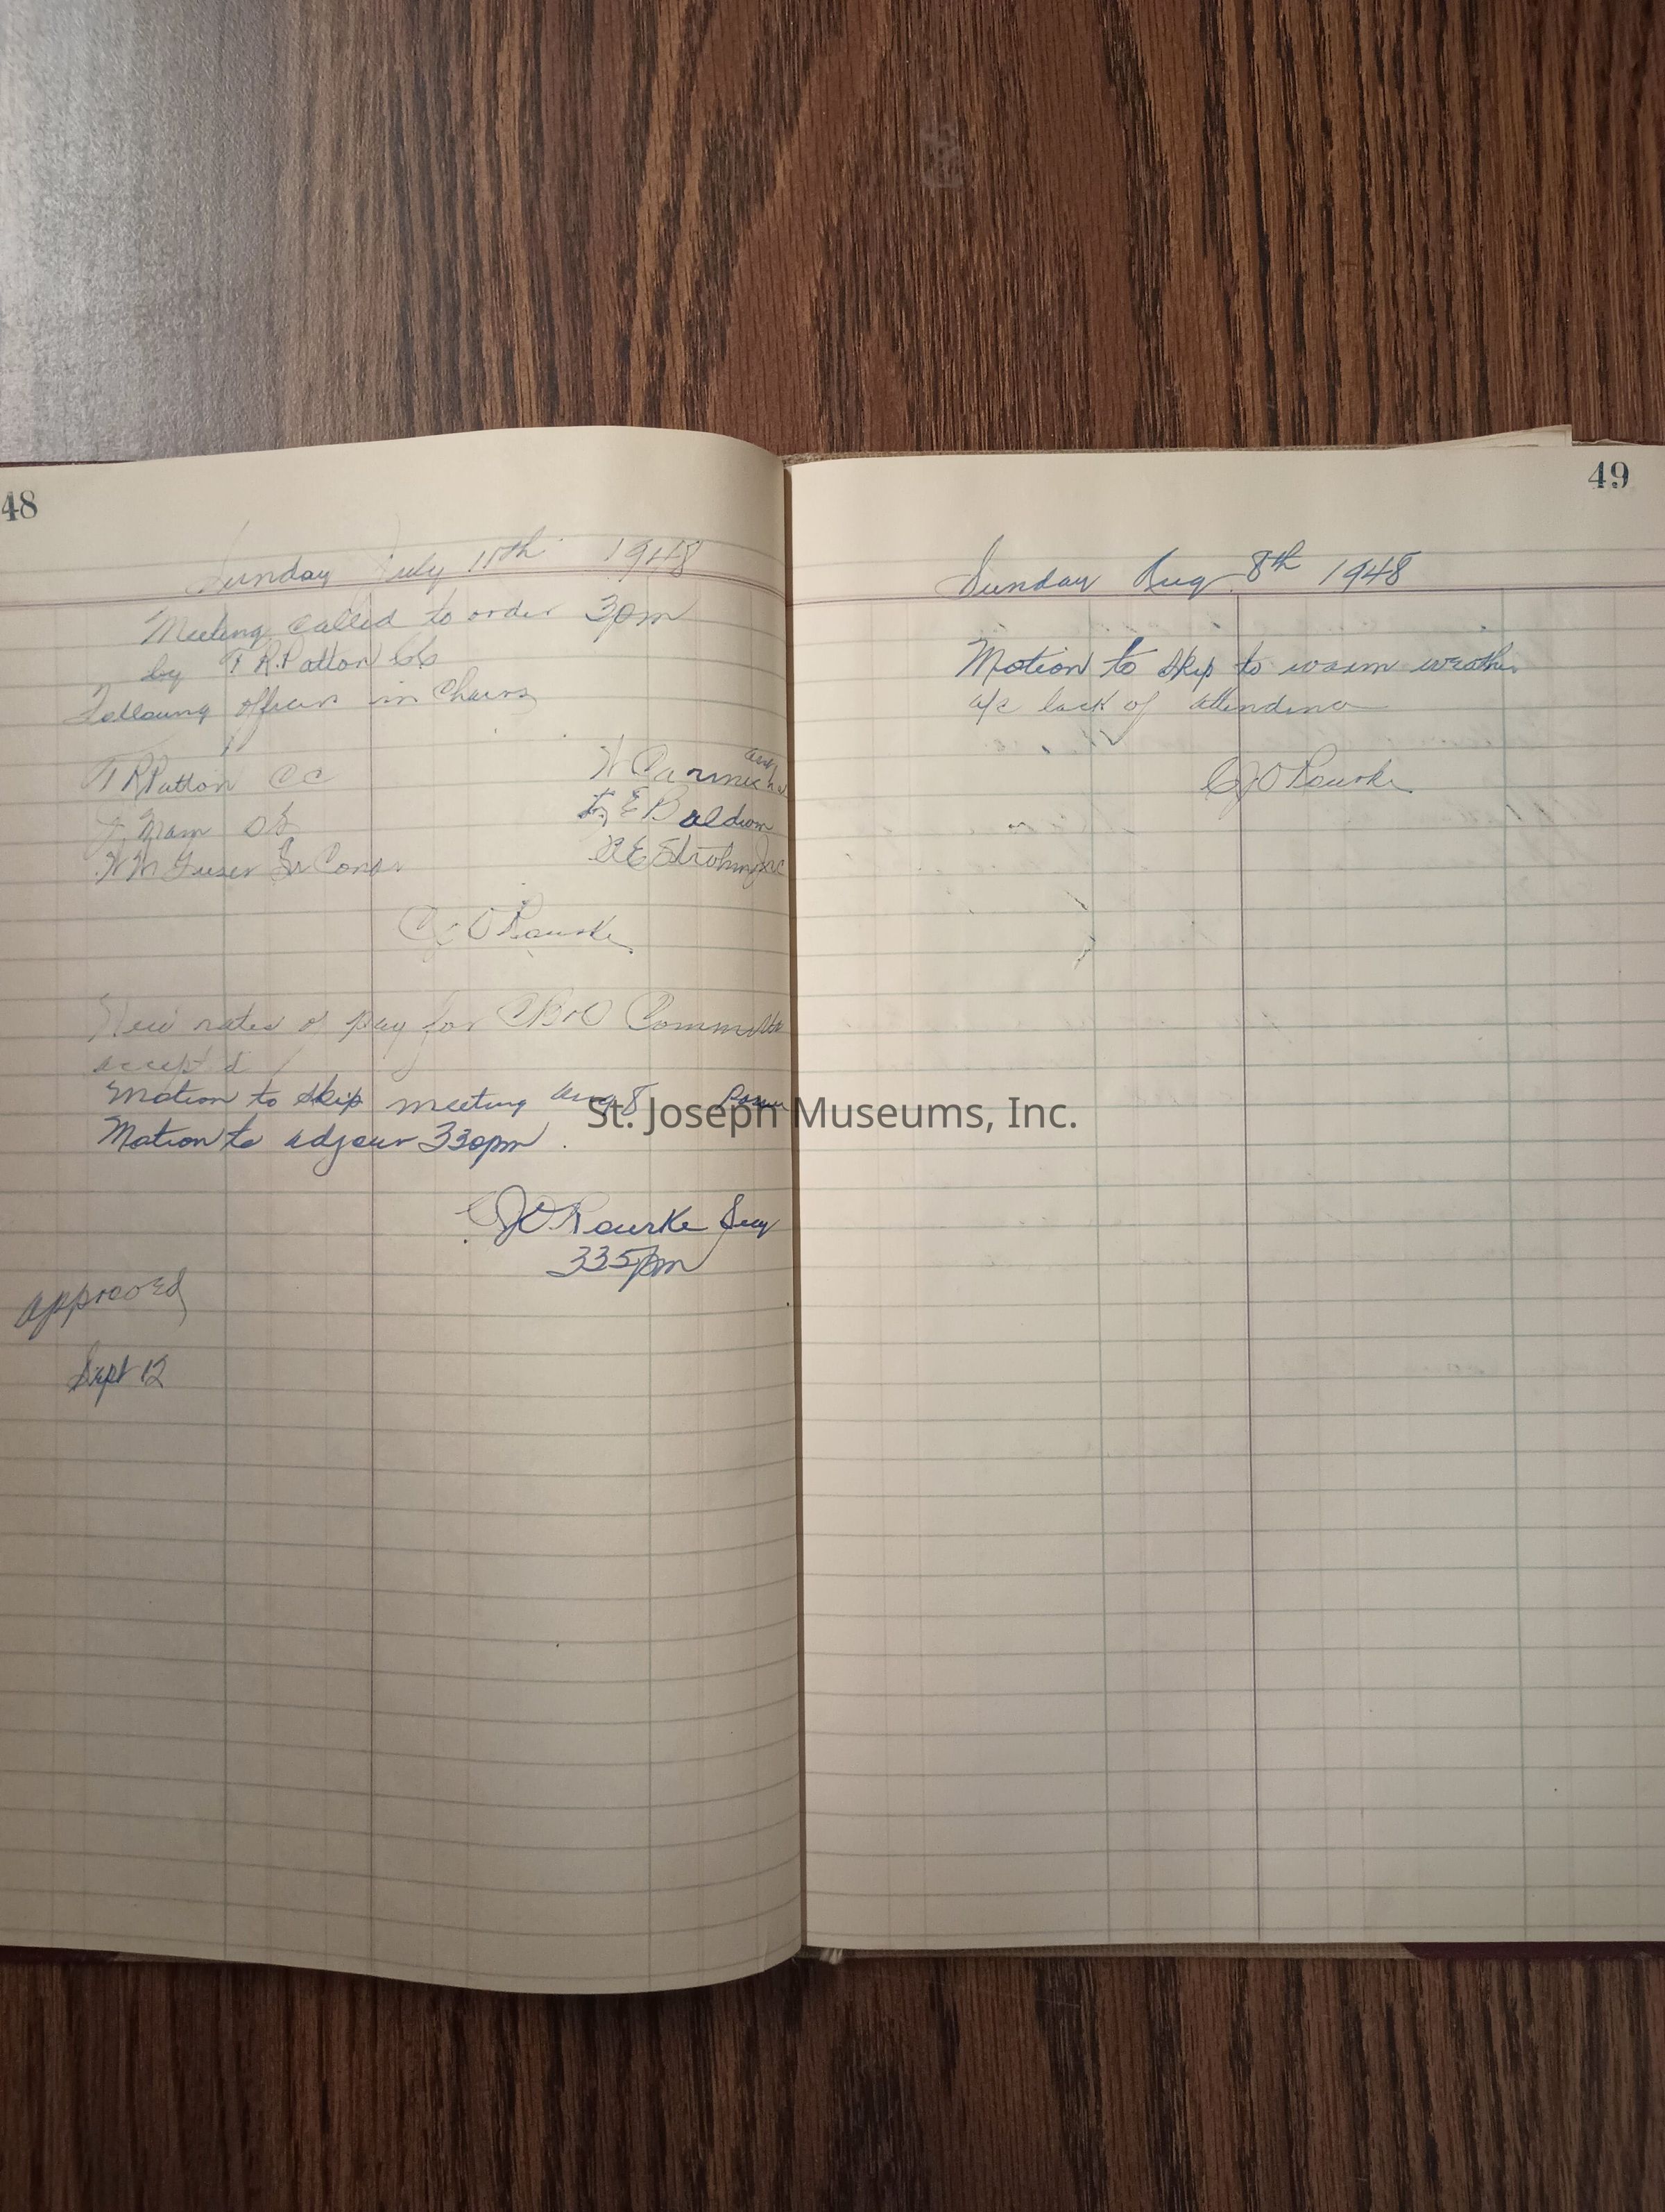 48
Sunday July 11th 1948
Meeting called to order 3pm
by T R Patton CC
Following officers in Chairs
T R Patton CC
W M Guser Sr Cons
E Baldwin
C J O Rourke
New rates of pay for CB&O Committee
accept'd
Motion to skip meeting Aug 8
Motion to adjour 330pm.
C J O Rourke Secy
335pm
approved
Sept 12
49
Sunday Aug 8th 1948
Motion to skip to warm weather
a/c lack of attendence
C J O Rourke
St. Joseph Museums, Inc.